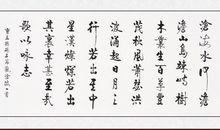 滄海水何澹
澹山島竦峙樹
木叢生百草豐
茂秋風蕭瑟洪
波涌起日月之
行若出其中
星漢燦爛若出
其裏幸甚至哉
歌以咏志